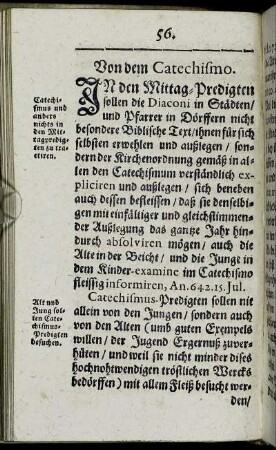 56.
Von dem Catechiſmo.
Catechiſ-
mus und
anders
nichts in
den Mit-
tagpredig-
ten zu tra-
ctiren.
IN den Mittag-Predigten
ſollen die Diaconi in Städten/
und Pfarrer in Dörffern nicht
beſondere Bibliſche Text/ihnen für ſich
ſelbſten erwehlen und außlegen/ ſon-
dern der Kirchenordnung gemäß in al-
len den Catechiſmum verſtändlich ex-
pliciren und außlegen/ ſich beneben
auch deſſen befleiſſen/ daß ſie denſelbi-
gen mit einfältiger und gleichſtimmen-
der Außlegung das gantze Jahr hin-
durch abſolviren mögen/ auch die
Alte in der Beicht/ und die Junge in
dem Kinder-examine im Catechiſmo
fleiſſig informiren, An. 642. 15. Jul.
Alt und
Jung ſol-
len Cate-
chiſmus-
Predigten
beſuchen.
Catechiſmus-Predigten ſollen nit
allein von den Jungen/ ſondern auch
von den Alten (umb guten Exempels
willen/ der Jugend Ergernuß zuver-
hüten/ und weil ſie nicht minder diſes
hochnohtwendigen tröſtlichen Wercks
bedörffen) mit allem Fleiß beſucht wer-
den/